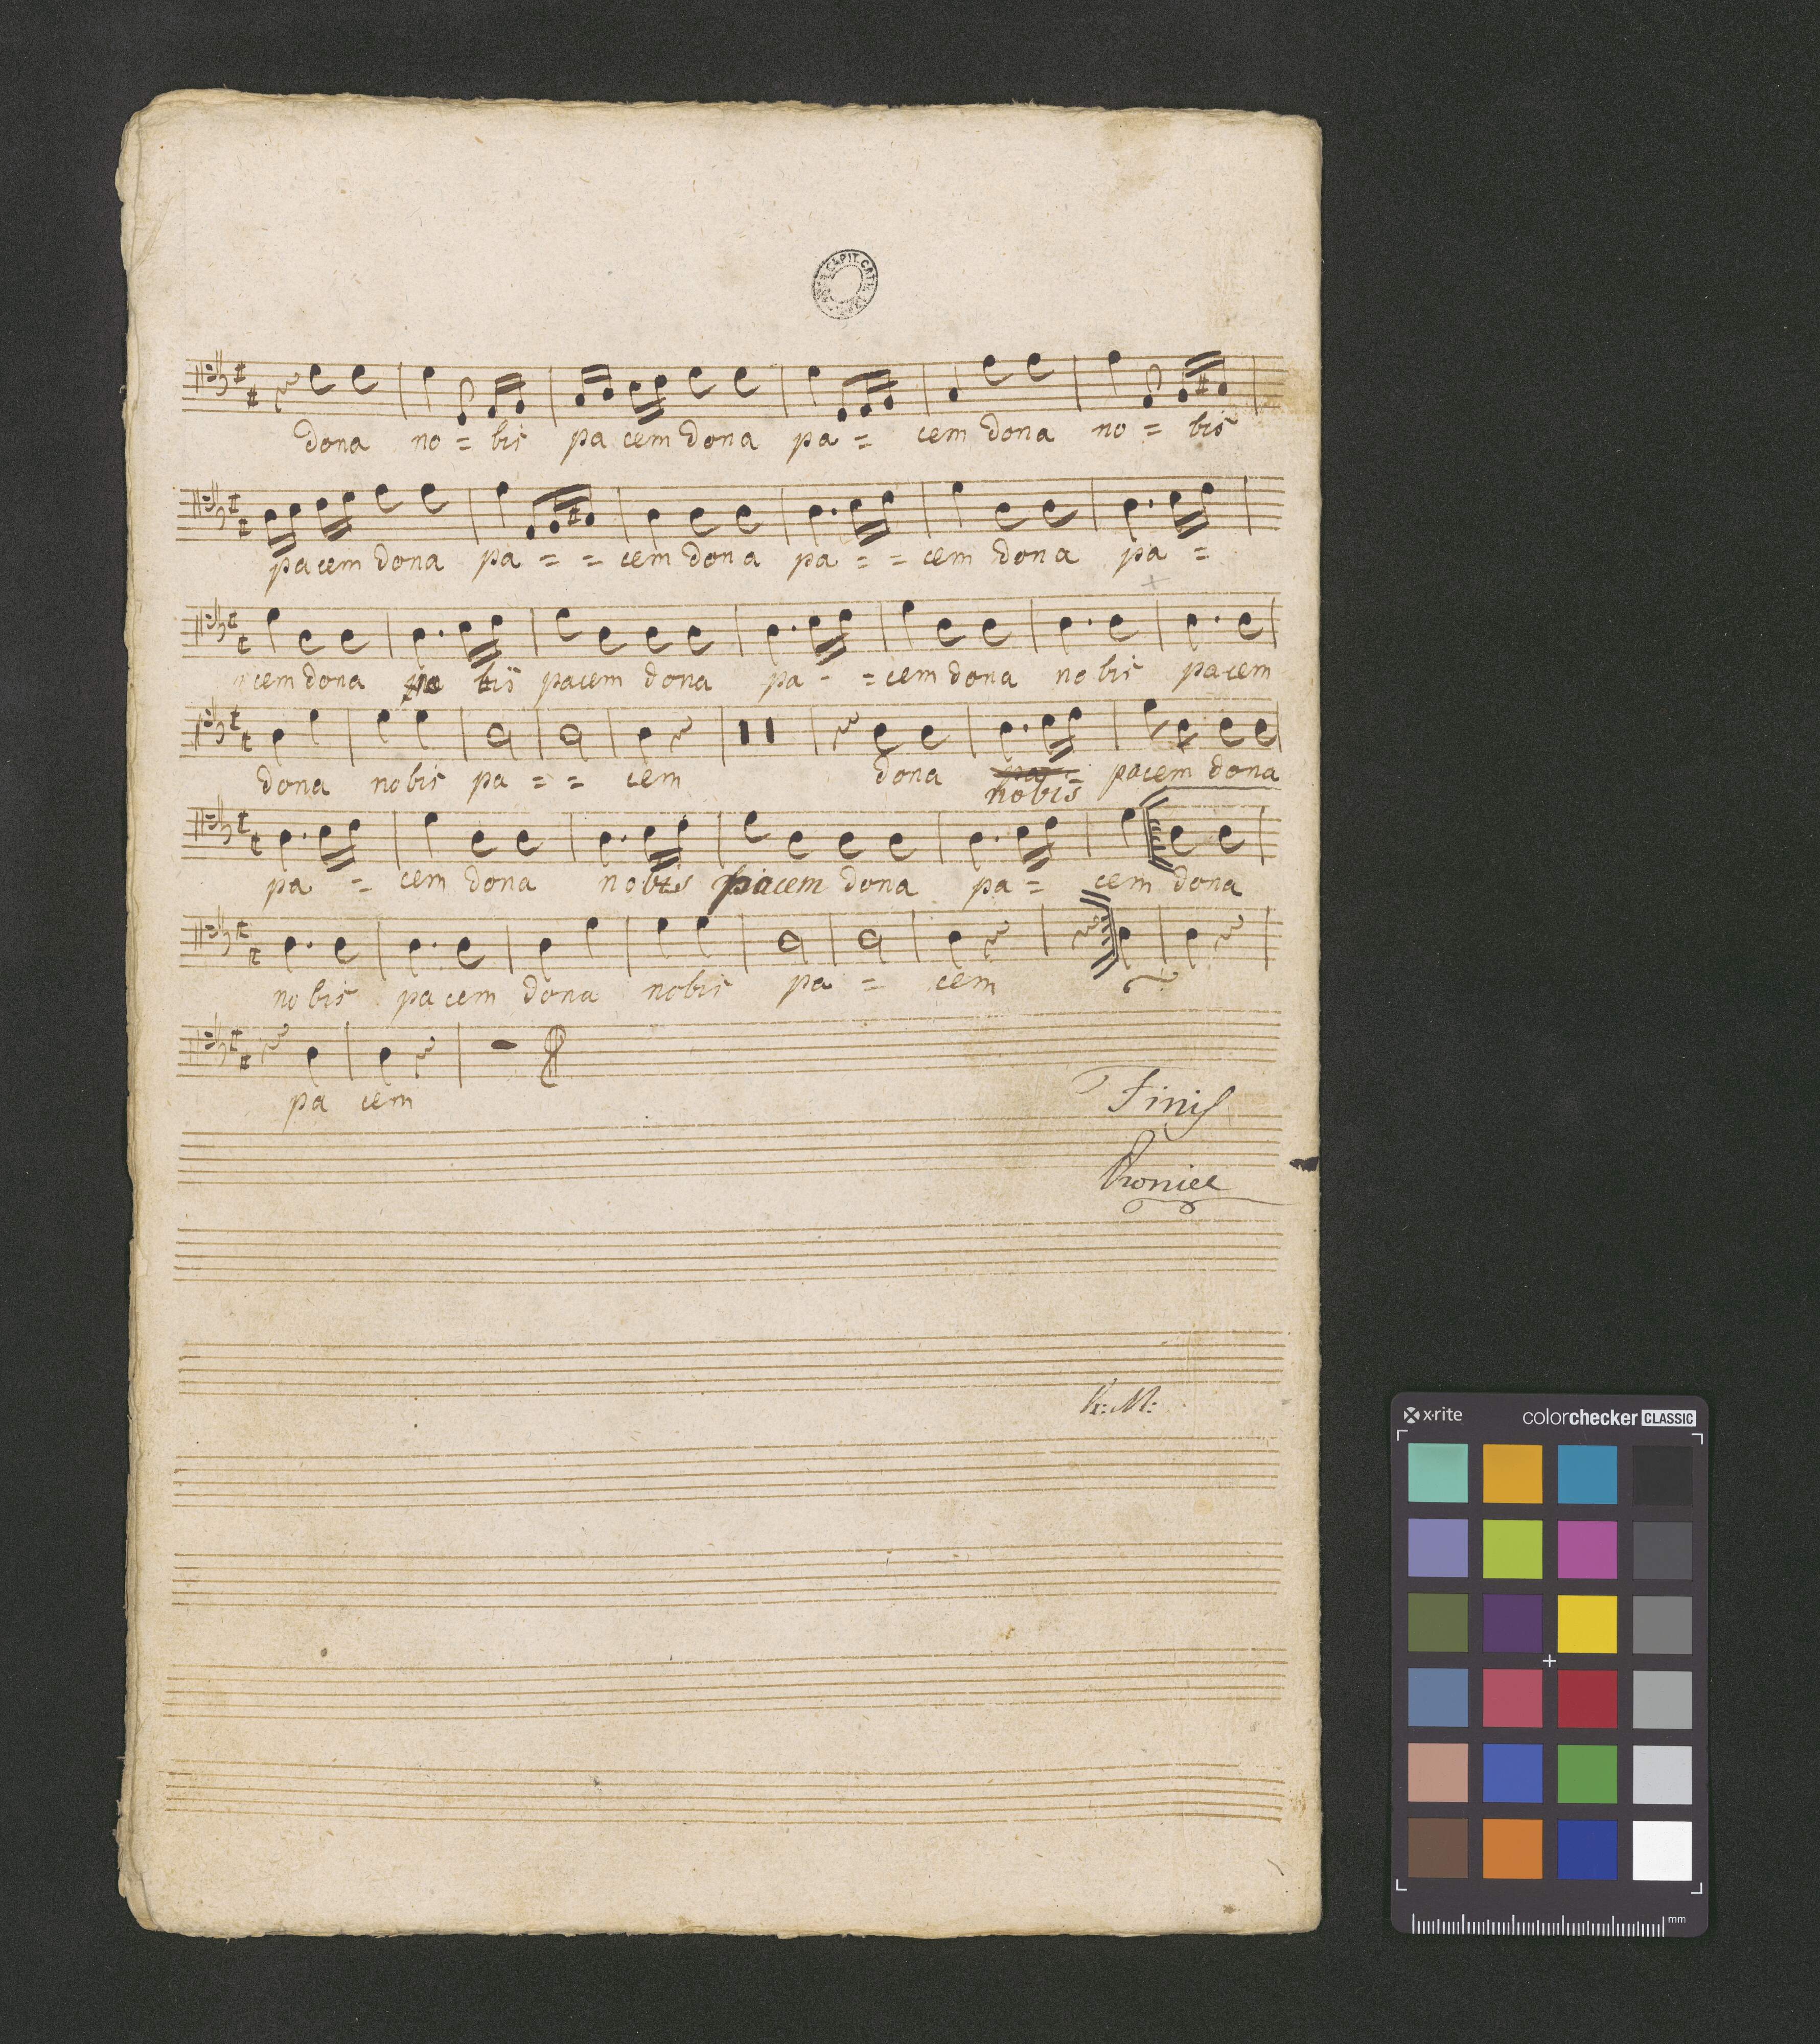 CAPIT. CATH.
dona no = bis pa cem dona pa = cem dona no = bis
pa cem dona pa = = cem dona pa = = cem dona pa =
cem dona bis pacem dona pa - = cem dona no bis pa cem
dona no bis pa = = cem dona pa = pacem dona
nobis
pa = cem dona nobis pacem dona pa = cem dona
no bis pa cem dona nobis pa = cem
pa cem
Finis
K: M:
x-rite colorchecker CLASSIC
mm